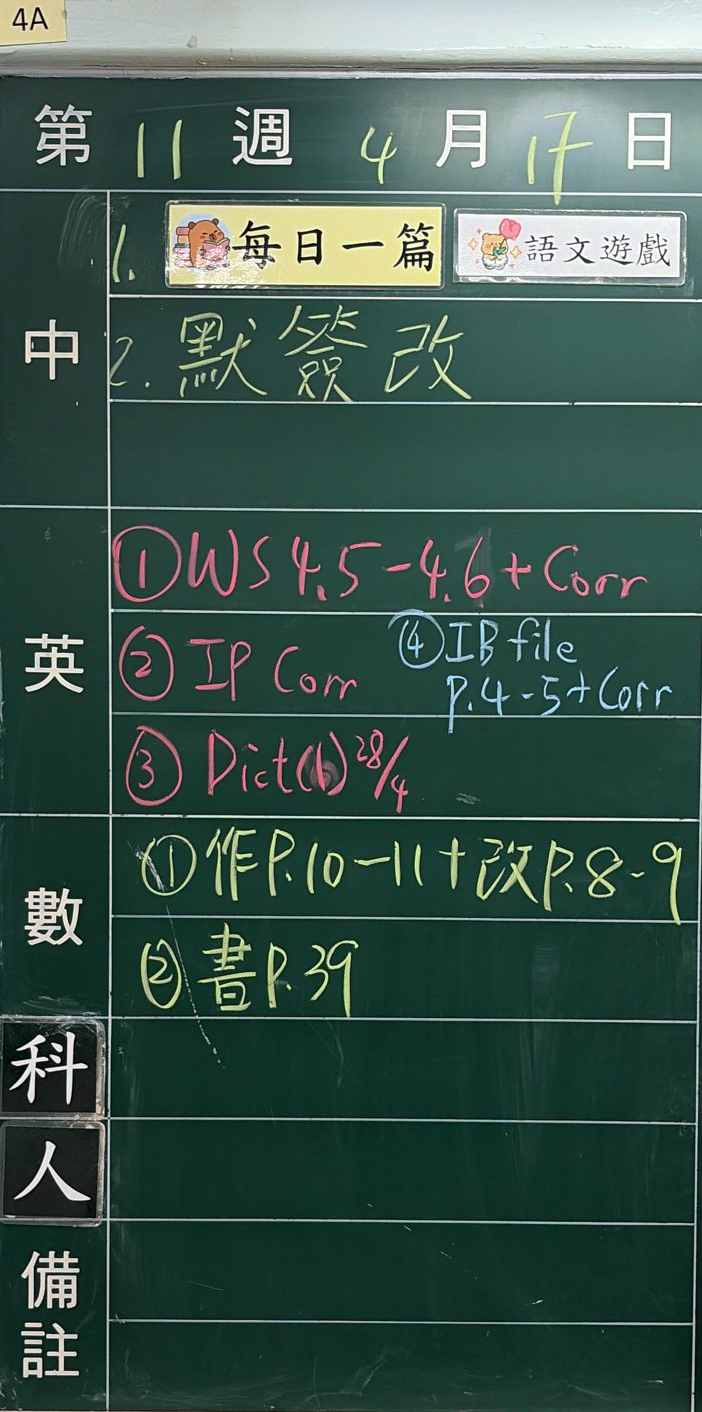 4A
第 11 週 4 月 17 日
中
1. 每日一篇 語文遊戲
2. 默簽改
英
①WS 4.5-4.6+Corr
② IP Corr
④IB file
P.4-5+Corr
③ Dict(6) 28/4
數
①作P.10-11+改P.8-9
②書P.39
科
人
備註